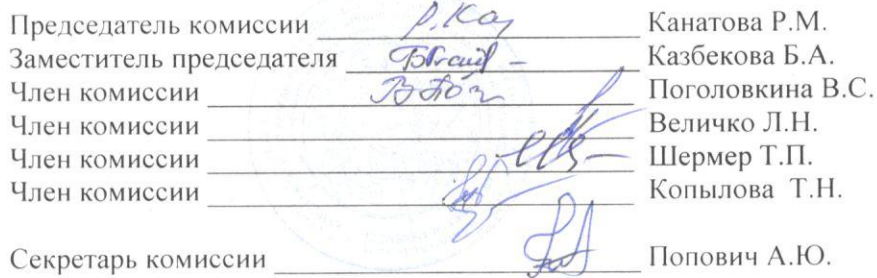 Председатель комиссии Р.Кан Канатова Р.М.
Заместитель председателя Казбекова Б.А.
Член комиссии Поголовкина В.С.
Член комиссии Величко Л.Н.
Член комиссии Шермер Т.П.
Член комиссии Копылова Т.Н.
Секретарь комиссии Попович А.Ю.